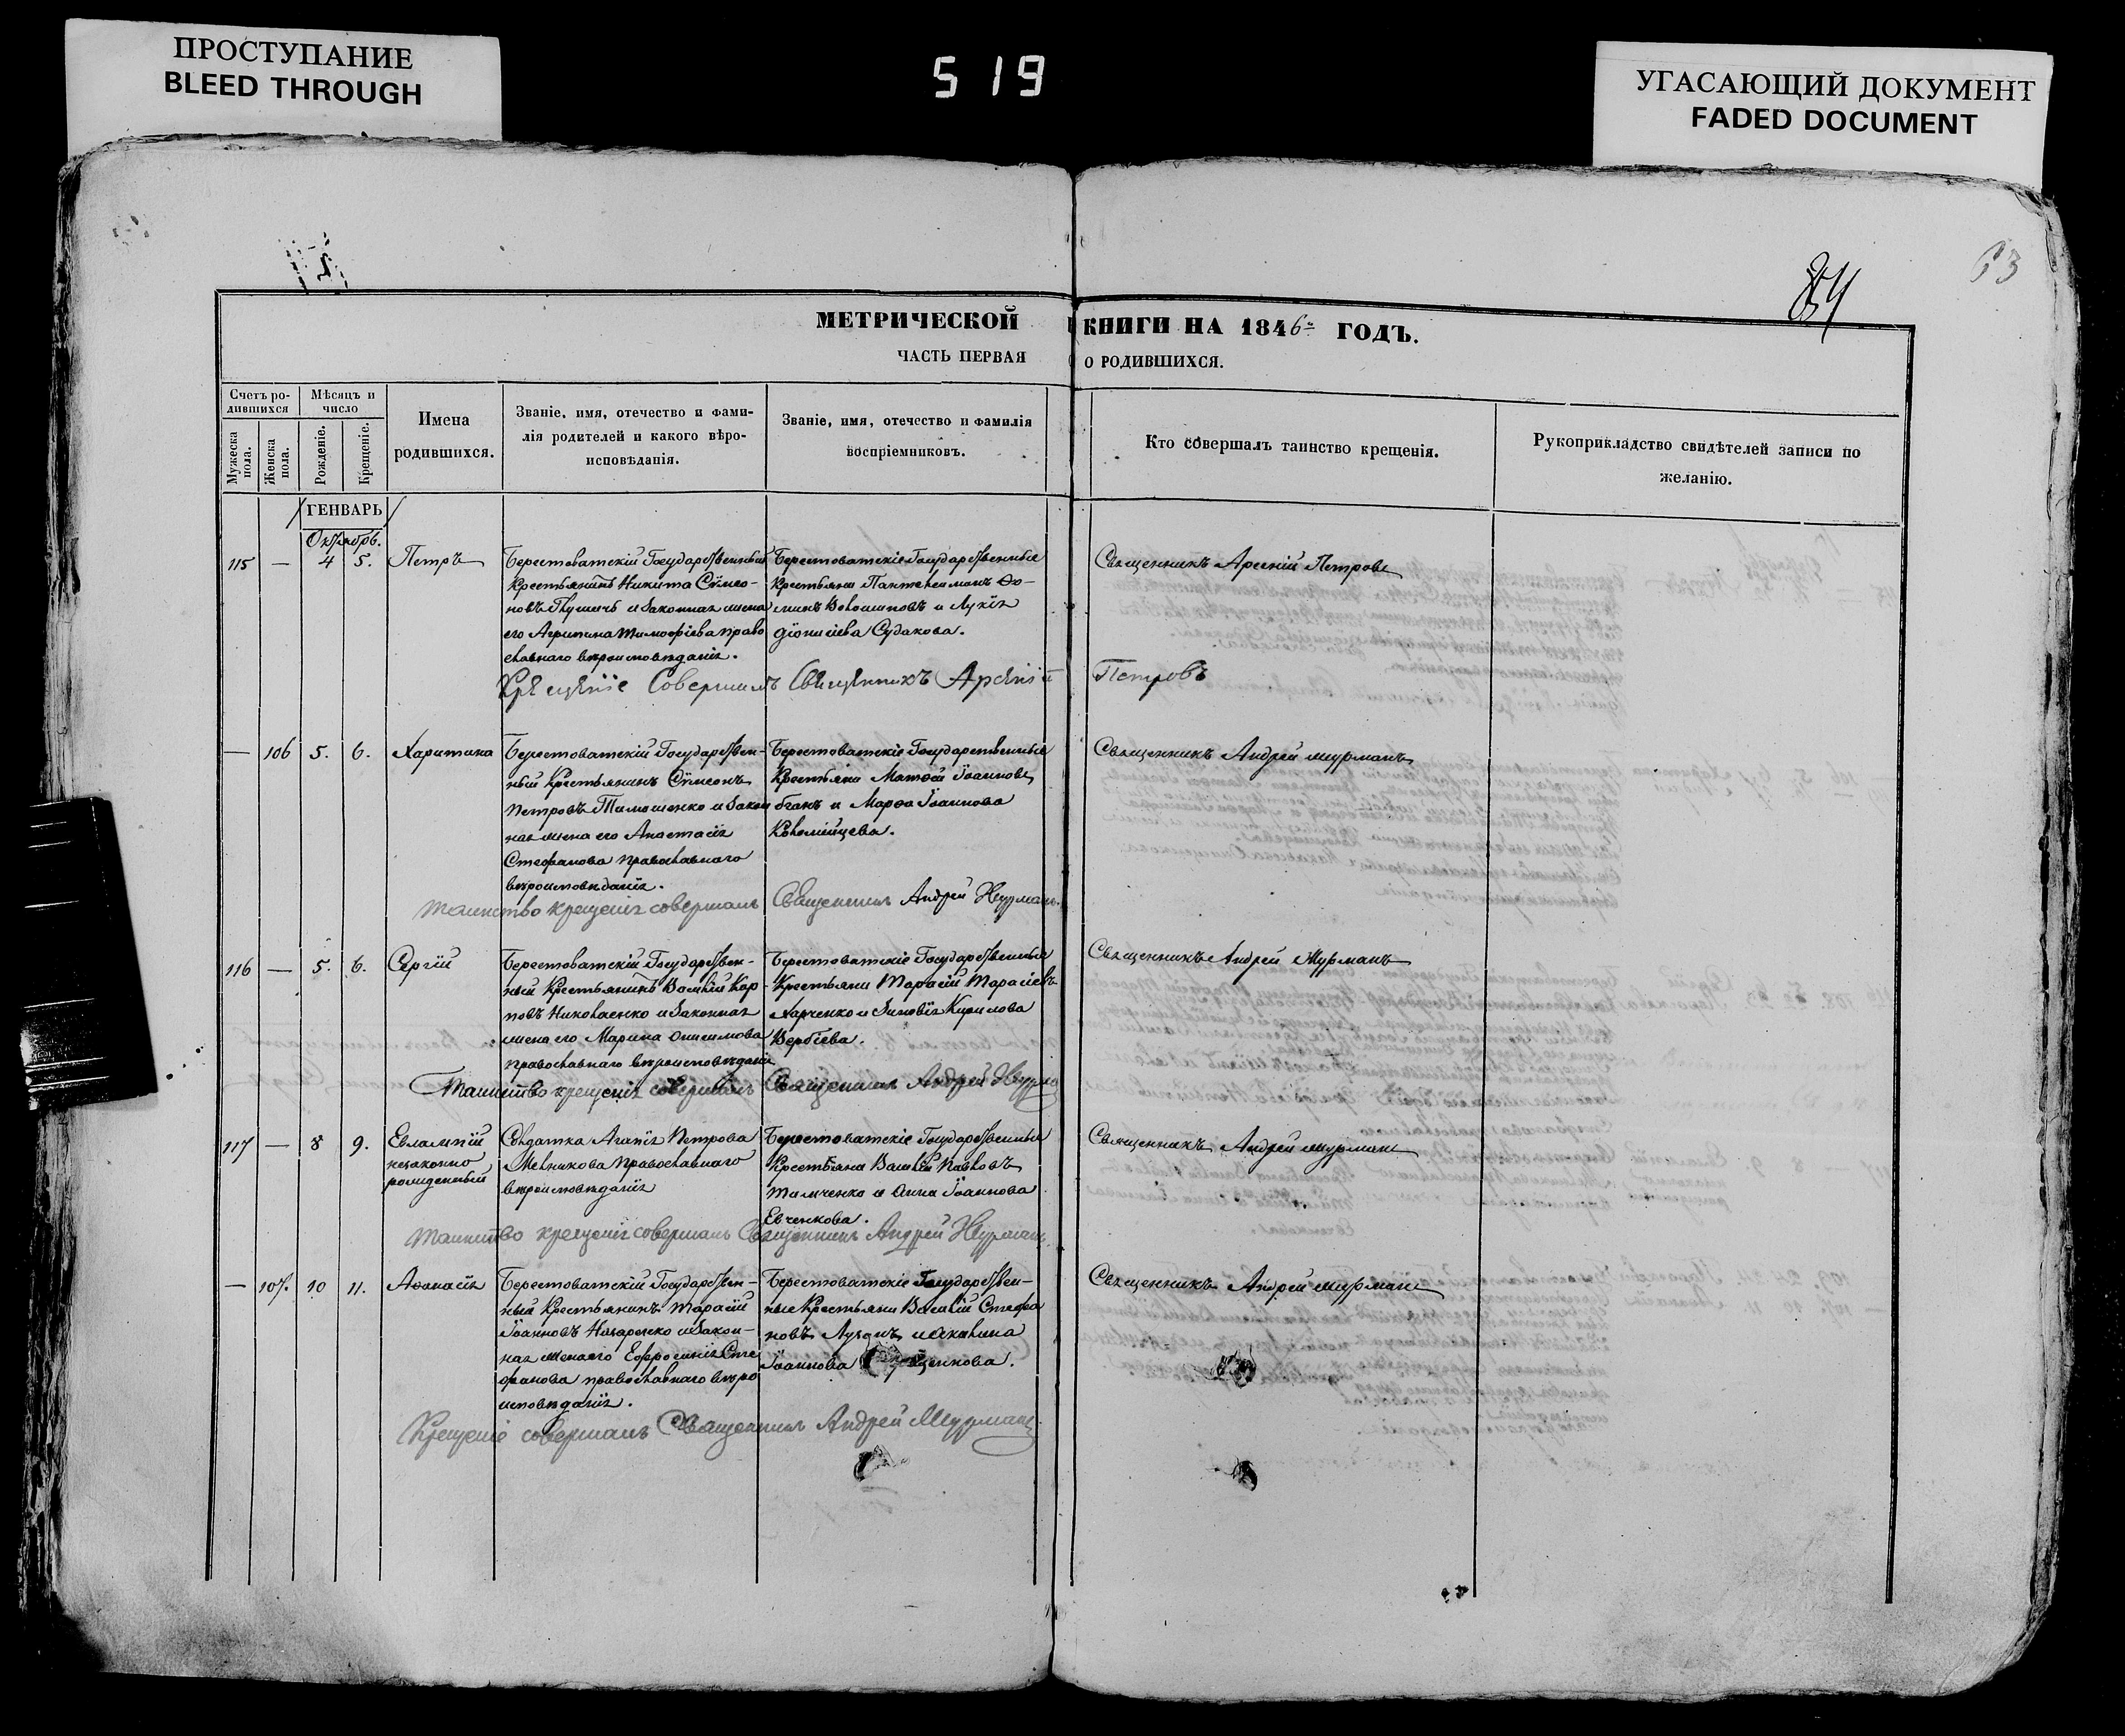 ПРОСТУПАНИЕ
BLEED THROUGH
519
УГАСАЮЩИЙ ДОКУМЕНТ
FADED DOCUMENT
63
МЕТРИЧЕСКОЙ КНИГИ НА 1846 ГОДЪ.
ЧАСТЬ ПЕРВАЯ О РОДИВШИХСЯ.
Счетъ ро-
дившихся
Мужеска пола.
Женска пола.
Мѣсяцъ и
число
Рожденіе.
Крещеніе.
Имена
родившихся.
Званіе, имя, отечество и фами-
лія родителей и какого вѣро-
исповѣданія.
Званіе, имя, отечество и фамилія
воспріемниковъ.
Кто совершалъ таинство крещенія.
Рукоприкладство свидѣтелей записи по
желанію.
ГЕНВАРЬ
Октябрь.
115 — 4 5. Петръ
Берестоватскій Государственный
Крестьянинъ Никита Сѵмео-
новъ и законная жена
его Агрипина Тимофіева право
славнаго вѣроисповѣданія.
Берестоватскіе Государственные
Крестьяни Пантелеимонъ Ѳо-
минъ Волошиновъ и Лукія
Діонисіева Судакова.
Священникъ Арсеній Петровъ
Крещеніе Совершилъ Священникъ Арсеній Петровъ
— 106 5. 6. Харитина
Берестоватскій Государствен-
ный Крестьянинъ Сѵмеонъ
Петровъ Тимошенко и закон
ная жена его Анастасія
Стефанова православнаго
вѣроисповѣданія.
Берестоватскіе Государственные
Крестьяни Матѳей Іоанновъ
и Марѳа Іоаннова
Коломійцева.
Священникъ Андрей Журманъ
Таинство крещенія совершалъ Священникъ Андрей Журманъ.
116 — 5. 6. Сергій
Берестоватскій Государствен-
ный Крестьянинъ Василій Кар-
повъ Николаенко и законная
жена его Марина Онисимова
православнаго вѣроисповѣданія
Берестоватскіе Государственные
Крестьяни Тарасій Тарасіевъ
Харченко и Зиновія Кирилова
Вербіева.
Священникъ Андрей Журманъ
Таинство крещенія совершалъ Священникъ Андрей Журма
117 — 8 9. Евлампій
незаконно
рожденный
Солдатка Агапія Петрова
Мельникова православнаго
вѣроисповѣданія
Берестоватскіе Государственные
Крестьяна Василій Павловъ
Тимченко и Анна Іоаннова
Евченкова.
Священникъ Андрей Журманъ
Таинство крещенія совершалъ Священникъ Андрей Журманъ.
— 107. 10 11. Аѳанасія
Берестоватскій Государствен-
ный Крестьянинъ Тарасій
Іоанновъ Назаренко и закон-
ная жена его Ефросинія Сте
фанова православнаго вѣро
исповѣданія.
Берестоватскіе Государствен-
ные Крестьяни Василій Стефа
новъ и Акилина
Іоаннова
Священникъ Андрей Журманъ
Крещеніе совершалъ Священникъ Андрей Журманъ.